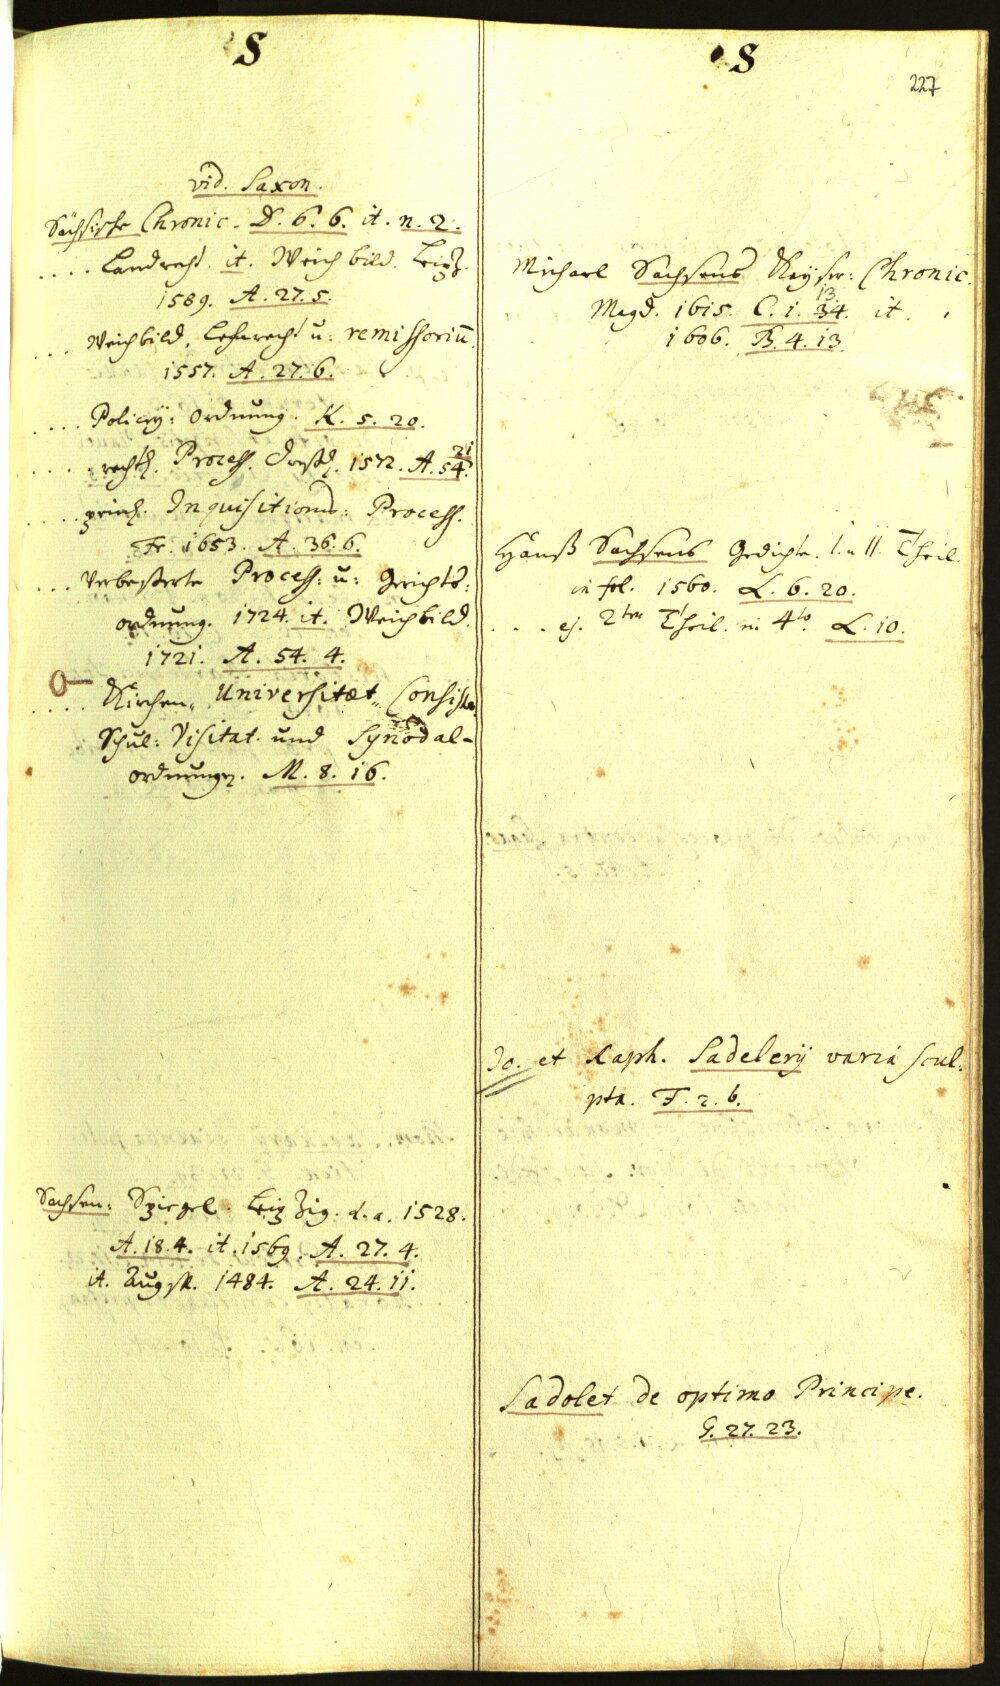 S
vid. Saxon.
Sächsische Chronic. D. 6. 6. it. n. 2.
.... Landrecht. it. Weichbild. Leipz.
1589. A. 27. 5.
... Weichbild, Lehnrecht u: remissoriū.
1557. A. 27. 6.
.... Policeÿ: Ordnung. K. 5. 20.
.... rechtl. Process. Dreßd. 1572. A. 54. 21
.... peinl. Inquisitions: Process.
Fr. 1653. A. 36. 6.
... Verbesserte Process: u: Gerichts:
ordnung. 1724. it. Weichbild.
1721. A. 54. 4.
.... Kirchen, Universitæt, Consist.
Schul: Visitat. und Synodal-
ordnungen. M. 8. 16.
Sachsen: Spiegel. Leipzig. d. a. 1528.
A. 18. 4. it. 1569. A. 27. 4.
it. Augsp. 1484. A. 24. 11.
S
227
Michael Sachsens Kayser: Chronic.
Magd. 1615. C. 1. 34. 13. it.
1606. B. 4. 13.
Hanß Sachsens Gedichte. I. u II. Theil.
in fol. 1560. L. 6. 20.
.... ej. 2ter Theil. in 4to. L. 10.
Jo. et Raph. Sadelerÿ varia scul:
pta. F. 2. 6.
Sadolet de optimo Principe.
G. 27. 23.